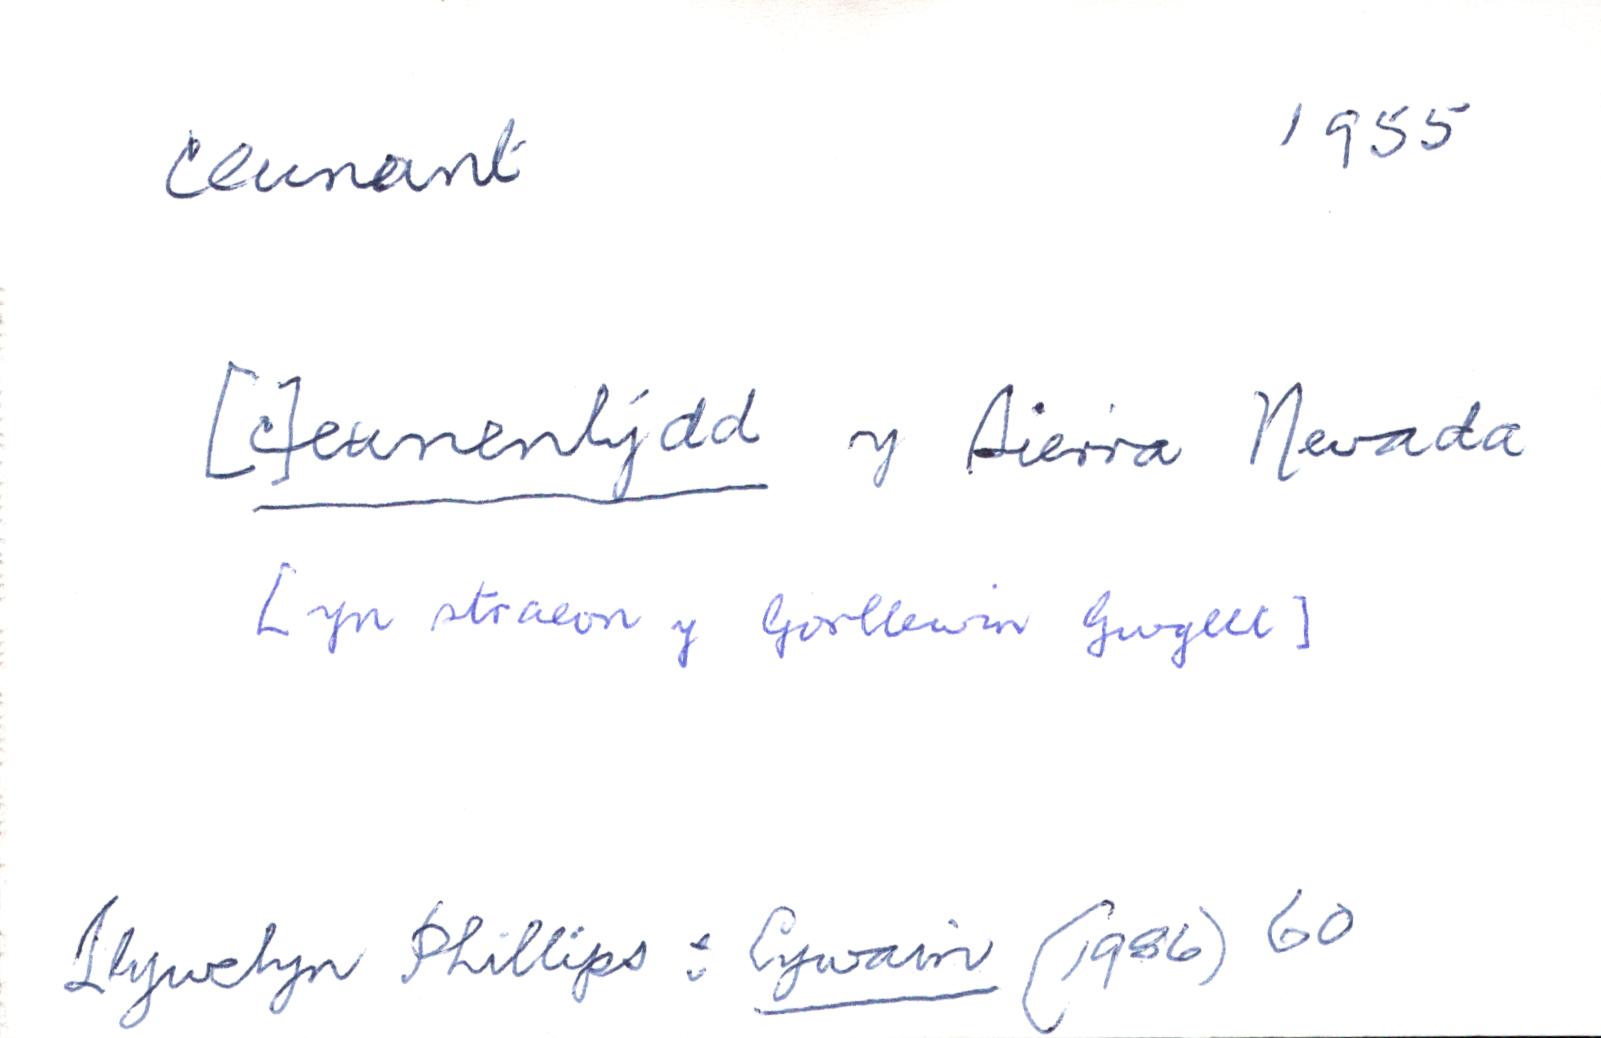 ceunant 1955
[c]eunentýdd y Sierra Nevada
[yn straeon y Gorllewin Gwyllt]
Llywelyn Phillips : Cywain (1986) 60